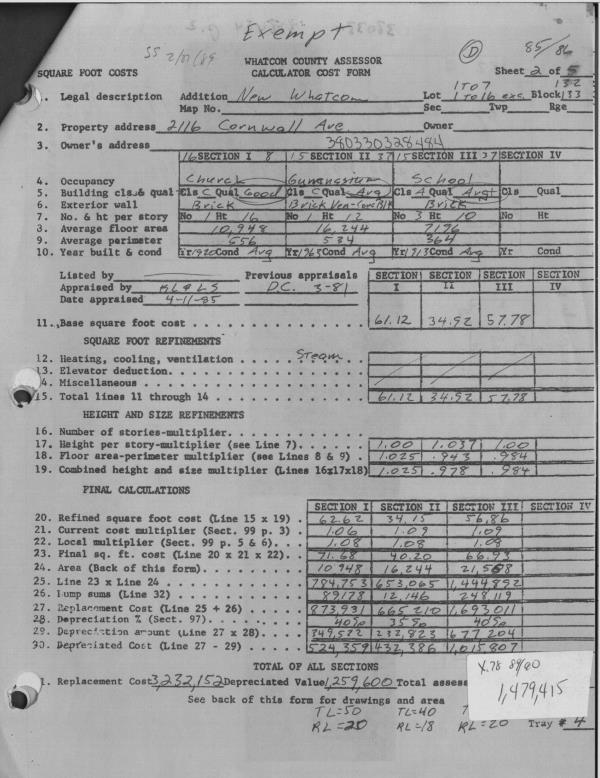 Exempt
SS 2/21/89
D
85/86
WHATCOM COUNTY ASSESSOR
SQUARE FOOT COSTS CALCULATOR COST FORM Sheet 2 of 5
1. Legal description Addition New Whatcom Lot 1 to 7 1 to 16 exc. Block 132 133
Map No. Sec Twp Rge
2. Property address 2116 Cornwall Ave. Owner
3. Owner's address 380330328484
16 SECTION I 8 15 SECTION II 37 15 SECTION III 37 SECTION IV
4. Occupancy Church Gymnasium School
5. Building clss & qual Cls C Qual Good Cls C Qual Avg Cls A Qual Avg+ Cls Qual
6. Exterior wall Brick Brick Ven-Conc Blk Brick
7. No. & ht per story No 1 Ht 16 No 1 Ht 12 No 3 Ht 10 No Ht
8. Average floor area 10,948 16,244 7196
9. Average perimeter 556 534 364
10. Year built & cond Yr 1920 Cond Avg Yr 1965 Cond Avg Yr 1913 Cond Avg Yr Cond
Listed by Previous appraisals SECTION I SECTION II SECTION III SECTION IV
Appraised by KL & LS D.C. 3-81
Date appraised 4-11-85
11. Base square foot cost 61.12 34.92 57.78
SQUARE FOOT REFINEMENTS
12. Heating, cooling, ventilation Steam
13. Elevator deduction
14. Miscellaneous
15. Total lines 11 through 14 61.12 34.92 57.78
HEIGHT AND SIZE REFINEMENTS
16. Number of stories-multiplier
17. Height per story-multiplier (see Line 7) 1.00 1.037 1.00
18. Floor area-perimeter multiplier (see Lines 8 & 9) 1.025 .943 .984
19. Combined height and size multiplier (Lines 16x17x18) 1.025 .978 .984
FINAL CALCULATIONS
SECTION I SECTION II SECTION III SECTION IV
20. Refined square foot cost (Line 15 x 19) 62.62 34.15 56.86
21. Current cost multiplier (Sect. 99 p. 3) 1.06 1.09 1.09
22. Local multiplier (Sect. 99 p. 5 & 6) 1.08 1.08 1.08
23. Final sq. ft. cost (Line 20 x 21 x 22) 71.68 40.20 66.93
24. Area (Back of this form) 10948 16,244 21,588
25. Line 23 x Line 24 784,753 653,065 1,444,892
26. Lump sums (Line 32) 89178 12,146 248,119
27. Replacement Cost (Line 25 + 26) 873,931 665,210 1,693,011
28. Depreciation % (Sect. 97) 40% 35% 40%
29. Depreciation amount (Line 27 x 28) 349,572 232,823 677,204
30. Depreciated Cost (Line 27 - 29) 524,359 432,386 1,015,807
TOTAL OF ALL SECTIONS
1. Replacement Cost 3,232,152 Depreciated Value 1,259,600 Total assess
See back of this form for drawings and area
X.78 89/90
1,479,415
TL=50 TL=40 T
RL=20 RL=18 RL=20 Tray # 4